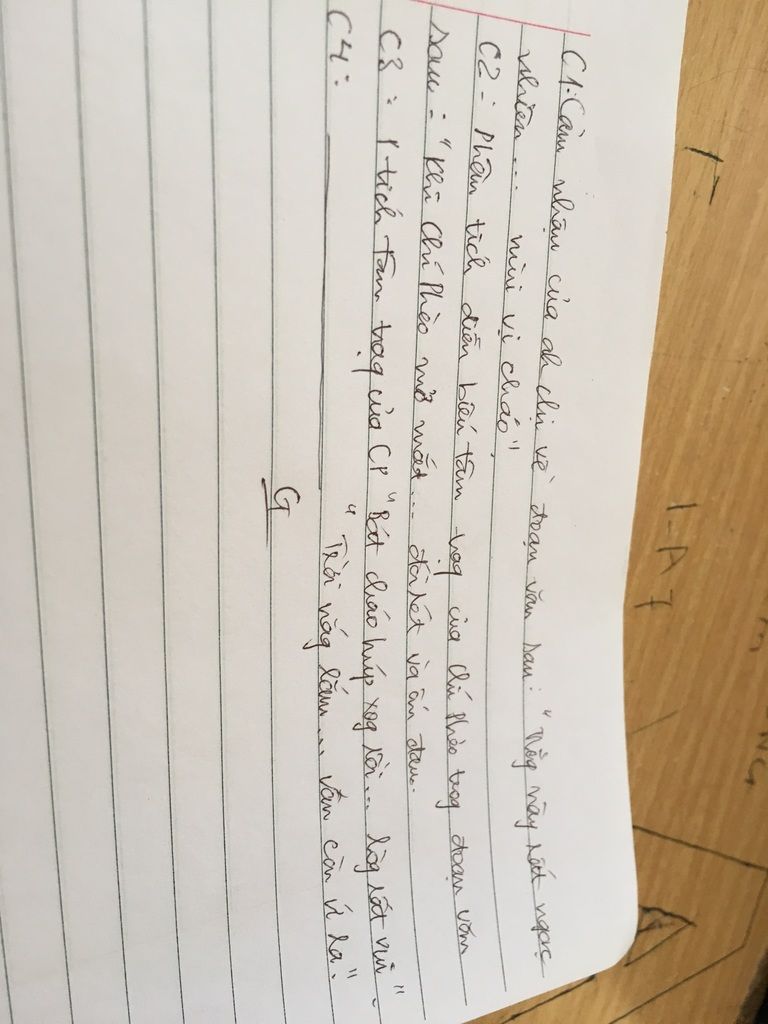 C1: Cảm nhận của ah chị về đoạn văn sau: "Nog này rất ngạc
nhiên... mùi vị cháo"
C2: Phân tích diễn biến tâm trạg của Chí Phèo trog đoạn văn
sau: "Khi Chí Phèo mở mắt... đói rét và ốm đau.
C3: P tích tâm trạg của CP "Bát cháo húp xog rồi... lòg rất vui".
C4: "Trời nắg lắm... vẫn còn ứ ra".
G
1-A7